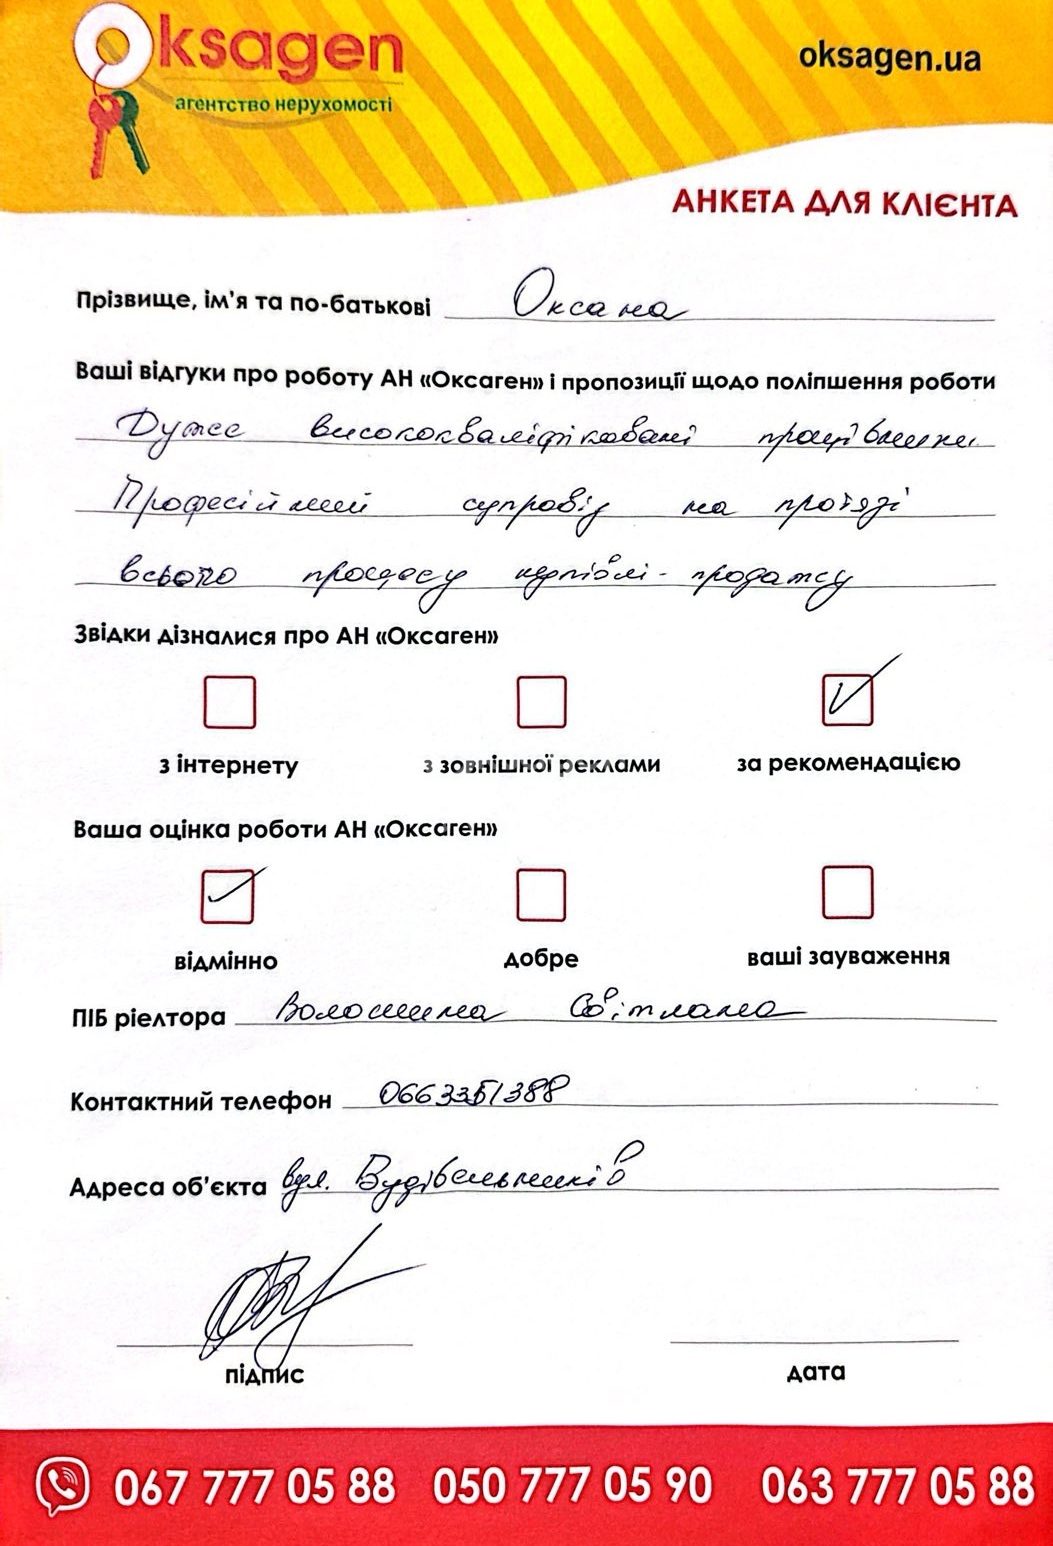 Oksagen
агентство нерухомості
oksagen.ua
АНКЕТА ДЛЯ КЛІЄНТА
Прізвище, ім'я та по-батькові Оксана
Ваші відгуки про роботу АН «Оксаген» і пропозиції щодо поліпшення роботи
Дуже висококваліфіковані працівники
Професійний супровід на протязі
всього процесу купівлі-продажу
Звідки дізналися про АН «Оксаген»
з інтернету з зовнішної реклами за рекомендацією
Ваша оцінка роботи АН «Оксаген»
відмінно добре ваші зауваження
ПІБ ріелтора Волошина Світлана
Контактний телефон 0663351388
Адреса об'єкта вул. Будівельників
підпис дата
067 777 05 88 050 777 05 90 063 777 05 88